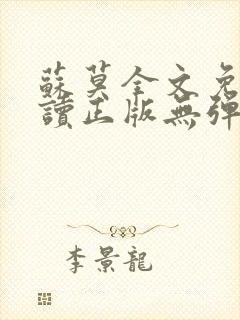 蘇莫全文免
讀正版無彈
李景龍